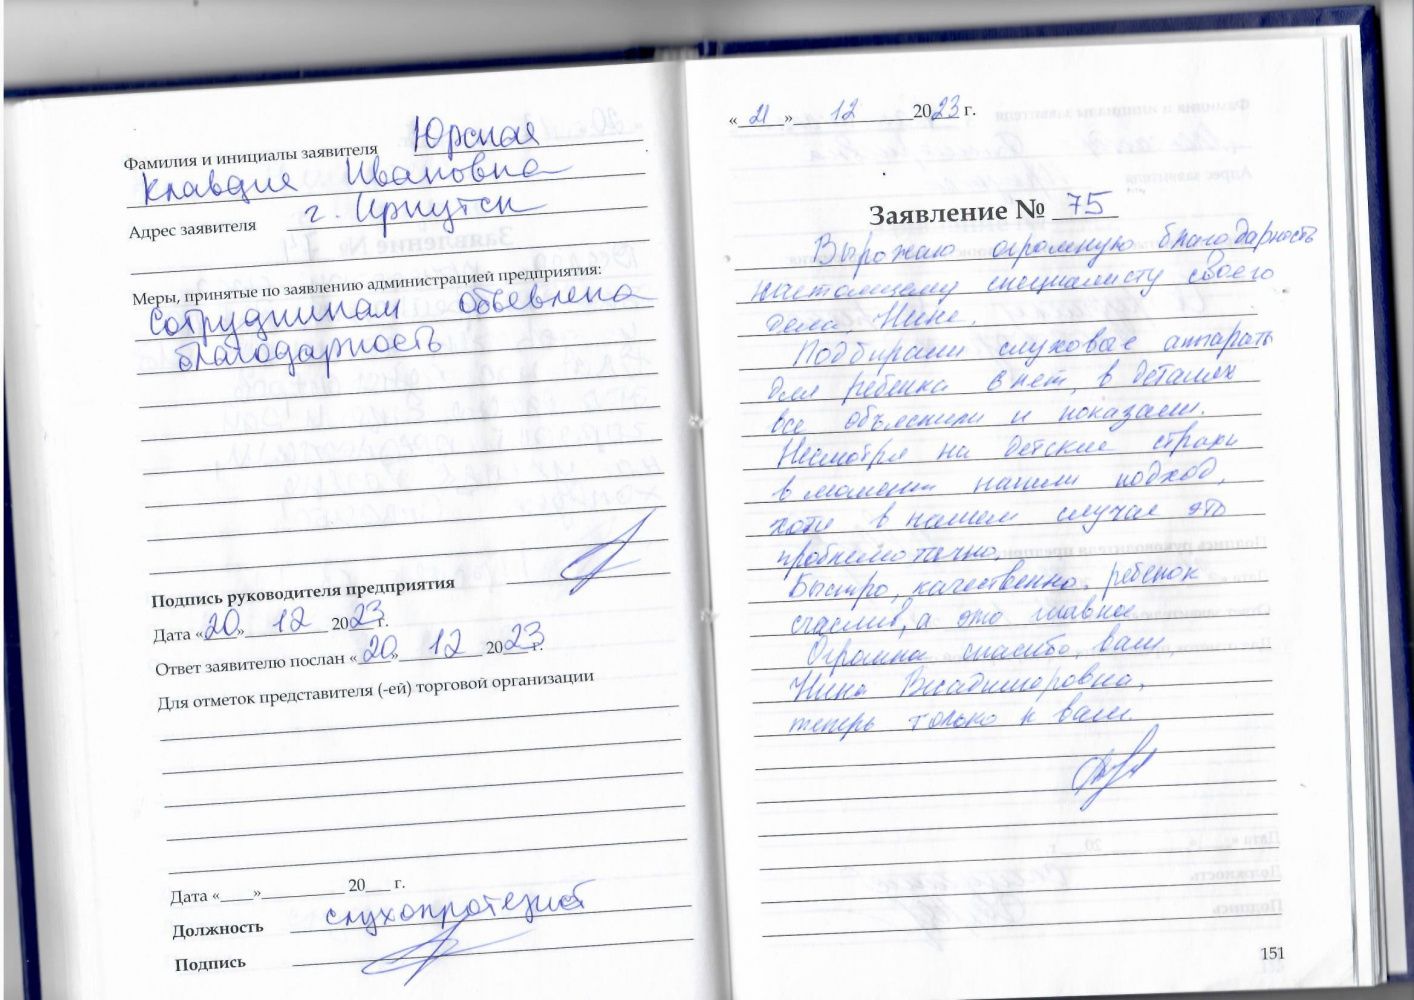 Фамилия и инициалы заявителя Юрская
Клавдия Ивановна
Адрес заявителя г. Иркутск
Меры, принятые по заявлению администрацией предприятия:
Сотрудникам объевлена
благодарность
Подпись руководителя предприятия
Дата «20» 12 2023 г.
Ответ заявителю послан «20» 12 2023 г.
Для отметок представителя (-ей) торговой организации
Дата «____»__________ 20___ г.
Должность слухопротезист
Подпись
«21» 12 2023 г.
Заявление № 75
Вырожаю огромную благодарность
настоящему специалисту своего
дела, Нине.
Подбирали слуховые аппараты
для ребенка 8 лет, в деталях
все объяснили и показали.
Несмотря на детские страхи
в моменте нашли подход,
хотя в нашем случае это
проблематично.
Быстро, качественно, ребенок
счастлив, а это главное.
Огромное спасибо, вам,
Нина Владимировна,
теперь только к вам.
151